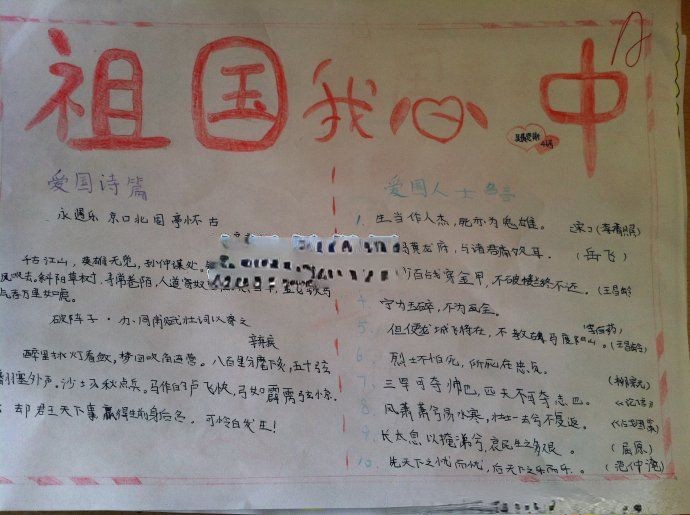 祖国我心中
爱国诗篇
永遇乐 京口北固亭怀古
千古江山，英雄无觅，孙仲谋处。
风吹去。斜阳草树，寻常巷陌，人道寄奴
万里如虎。
破阵子·为同甫赋壮词以寄之
辛弃疾
醉里挑灯看剑，梦回吹角连营。八百里分麾下炙，五十弦
翻塞外声。沙士秋点兵。马作的卢飞快，弓如霹雳弦惊。
却君王天下事，赢得生前身后名，可怜白发生！
爱国人士名言
1. 生当作人杰，死亦为鬼雄。 宋（李清照）
黄龙府，与诸君痛饮耳。（岳飞）
百战穿金甲，不破楼兰终不还。（王昌龄）
4. 宁为玉碎，不为瓦全。
5. 但使龙城飞将在，不教胡马度阴山。（王昌龄）
6. 烈士不怕死，所死在忠贞。
（柳宗元）
7. 三军可夺帅也，匹夫不可夺志也。《论语》
8. 风萧萧兮易水寒，壮士一去兮不复返。
9. 长太息以掩涕兮，哀民生之多艰。（屈原）
10. 先天下之忧而忧，后天下之乐而乐。（范仲淹）